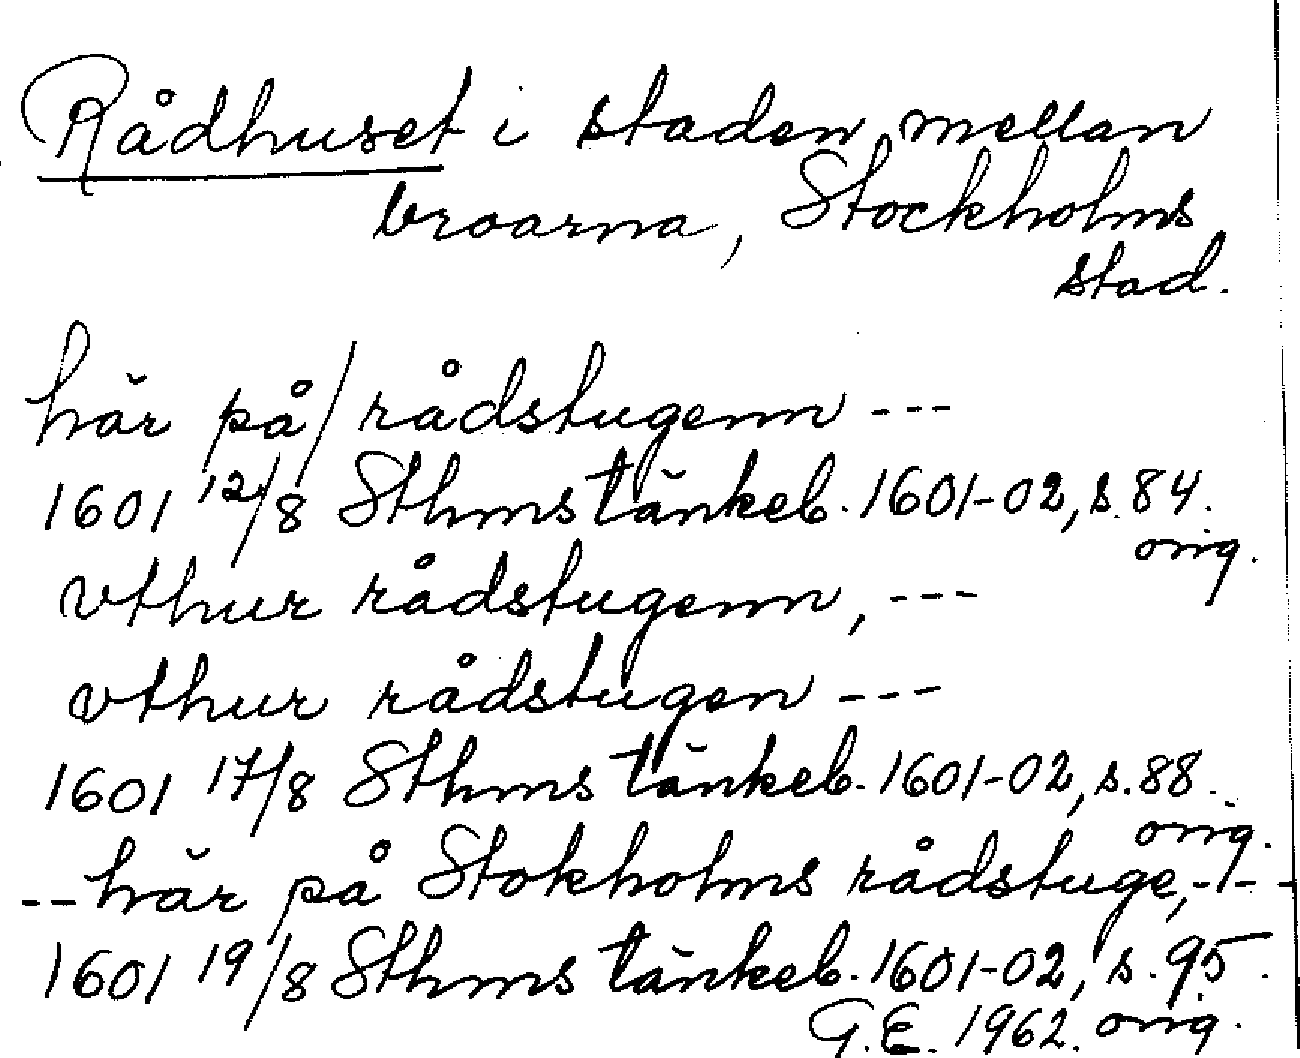 Rådhuset i staden mellan
broarna, Stockholms
stad.
här på/rådstugenn ---
1601 12/8 Sthms tänkeb. 1601-02, s. 84.
orig.
vthur rådstugenn, ---
vthur rådstugen ---
1601 17/8 Sthms tänkeb. 1601-02, s. 88.
orig.
-- här på Stokholms rådstuge, ---
1601 19/8 Sthms tänkeb. 1601-02, s. 95.
G.E. 1962. orig.